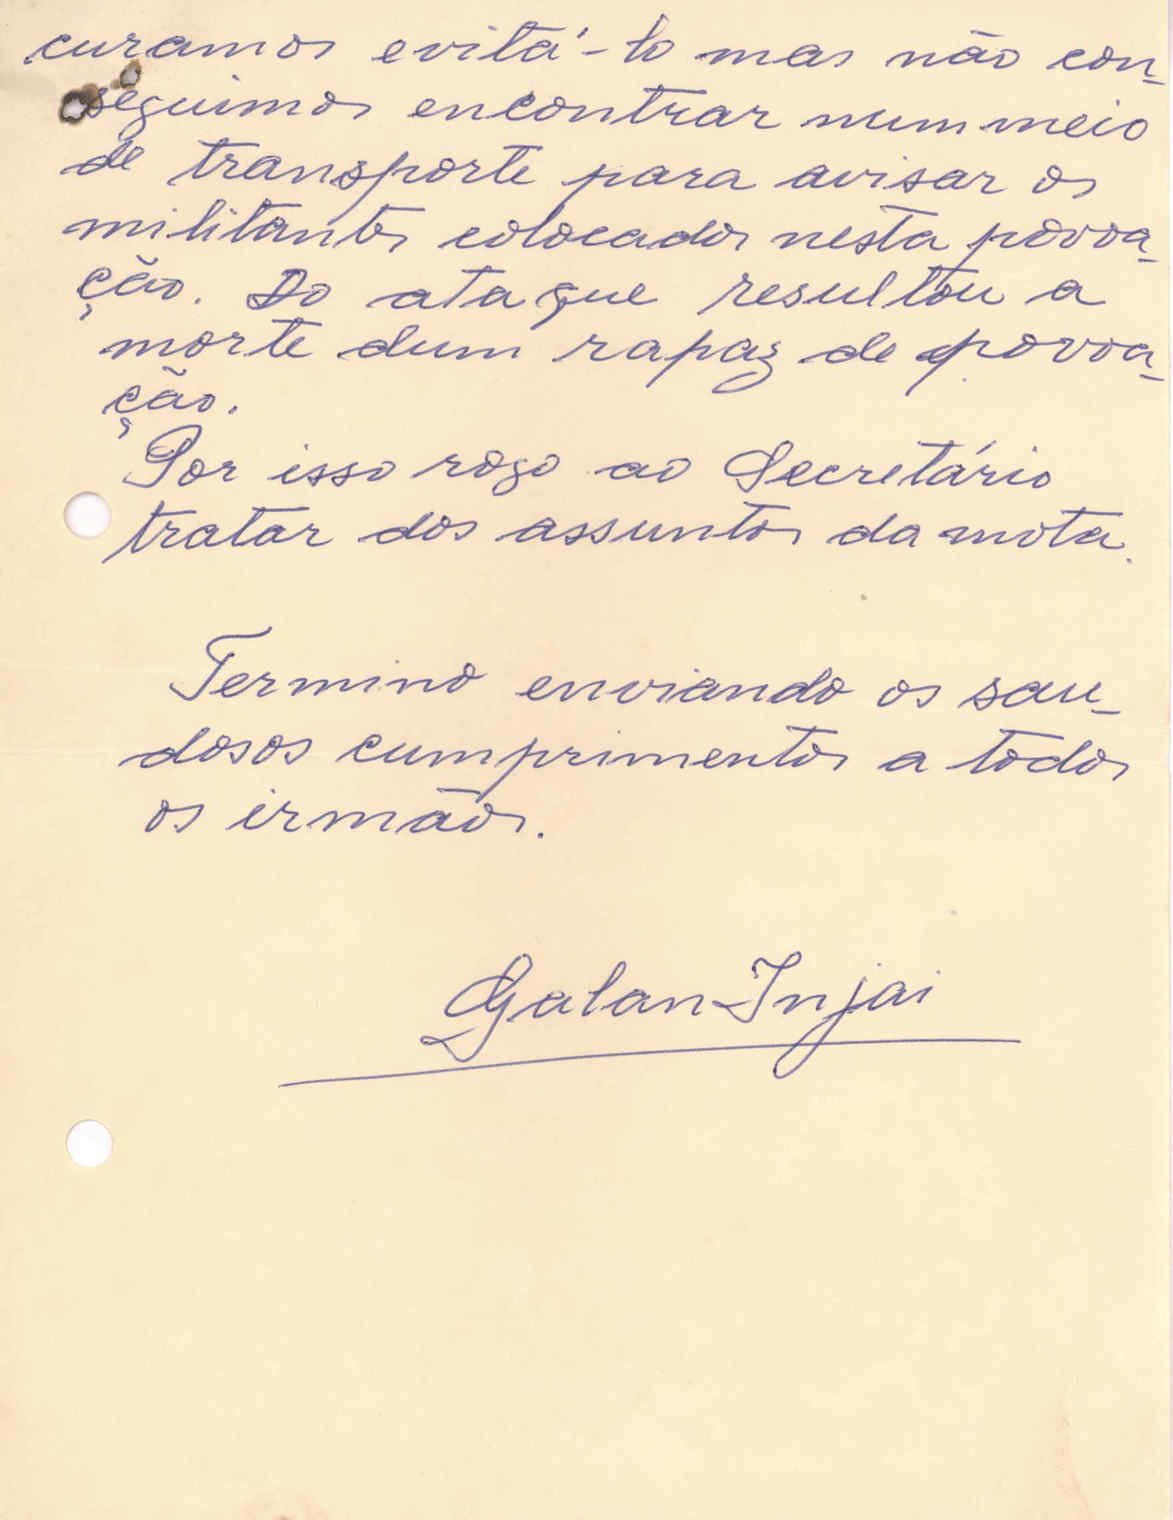 curamos evitá-lo mas não con-
seguimos encontrar num meio
de transporte para avisar os
militantes colocados nesta povoa-
ção. Do ataque resultou a
morte dum rapaz de povoa-
ção.
Por isso rogo ao Secretário
tratar dos assuntos da mota.
Termino enviando os sau-
dosos cumprimentos a todos
os irmãos.
Galan Injai